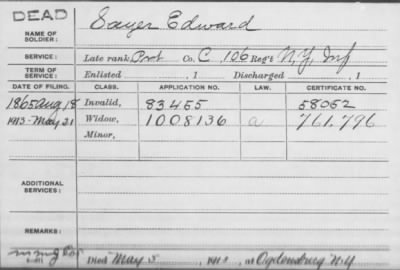 DEAD
NAME OF SOLDIER: Sayer Edward
SERVICE: Late rank Pvt Co. C, 106 Reg't N.Y. Inf
TERM OF SERVICE: Enlisted , 1 Discharged , 1
DATE OF FILING. CLASS. APPLICATION NO. LAW. CERTIFICATE NO.
1865 Aug 18 Invalid, 83455 58052
1913-May 21 Widow, 1008136 a 761.796
Minor,
ADDITIONAL SERVICES:
REMARKS:
Died May 5, 191 , at Ogdensburg N.Y.